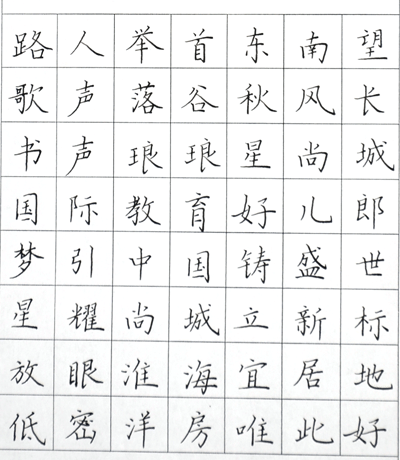 路人举首东南望
歌声落谷秋风长
书声琅琅星尚城
国际教育好儿郎
梦引中国铸盛世
星耀尚城立新标
放眼淮海宜居地
低密洋房唯此好